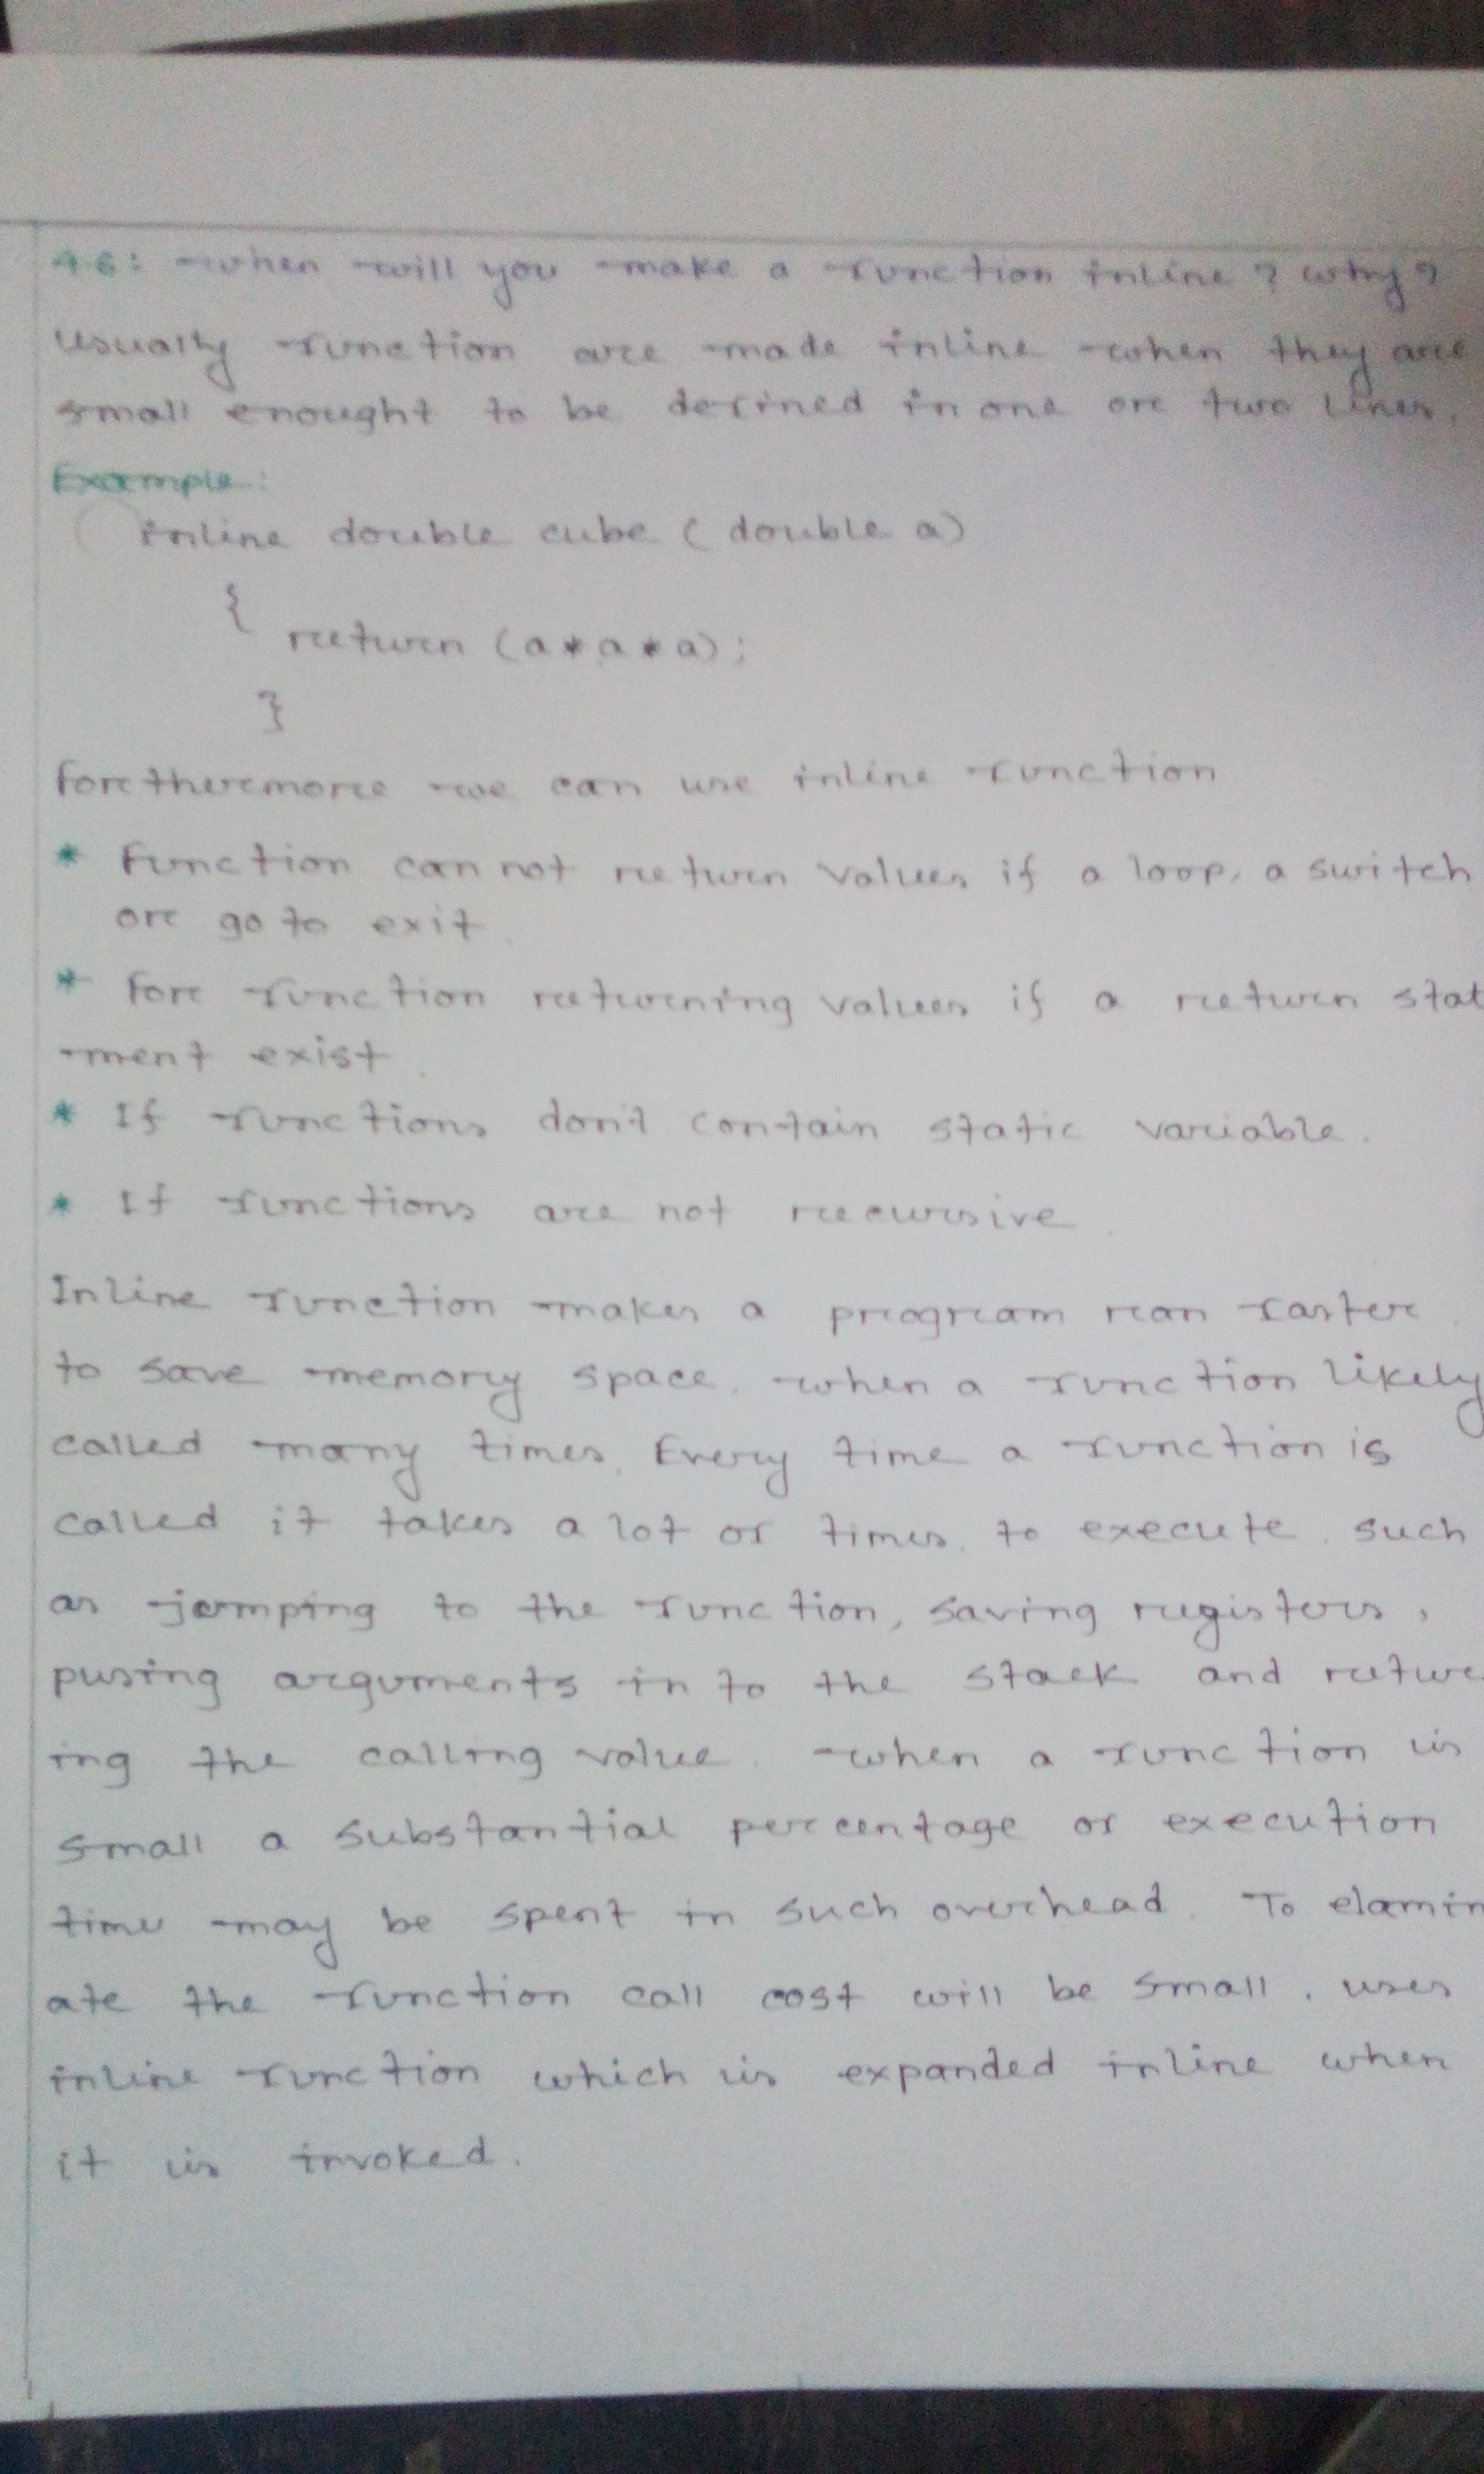 4.6: when will you make a function inline? why?
Usually function are made inline when they are
small enought to be defined in one or two lines.
Example:
inline double cube (double a)
{
return (a*a*a);
}
forthermore we can use inline function
* Function can not return values if a loop, a switch
or go to exit.
* For function returning values if a return stat
ment exist.
* If functions don't contain static variable.
* If functions are not recursive.
Inline function makes a program ran faster
to save memory space. when a function likely
called many times. Every time a function is
called it takes a lot of times. to execute. such
as jamping to the function, saving registers,
pusing arguments in to the stack and retur
ing the calling value. when a function is
small a substantial percentage of execution
time may be spent in such overhead. To elamin
ate the function call cost will be small, uses
inline function which is expanded inline when
it is invoked.